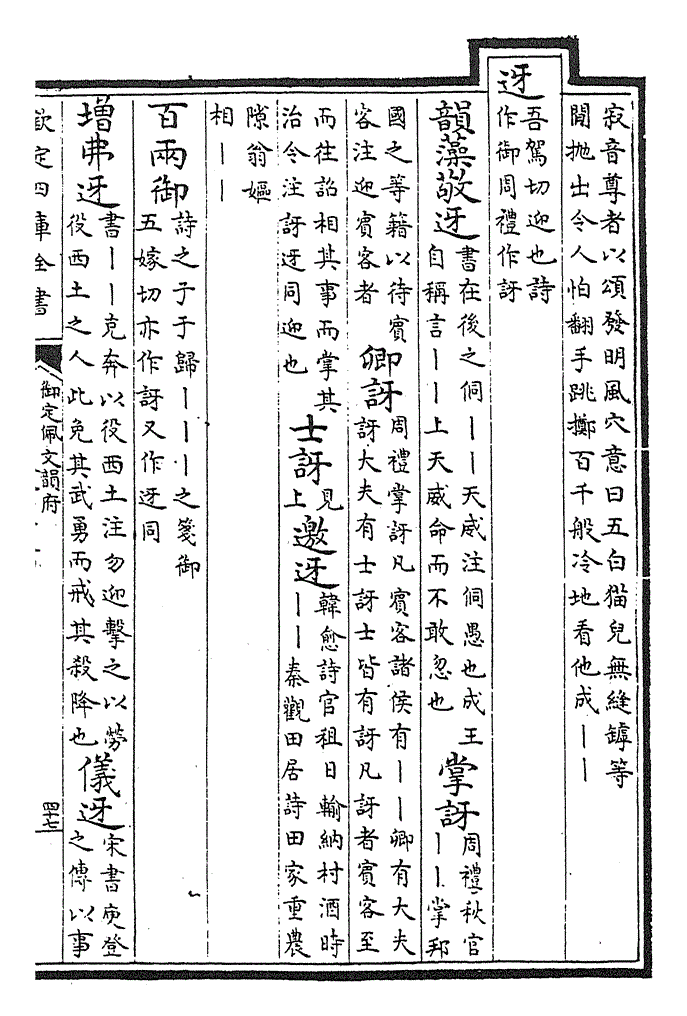 寂音尊者以頌發明風穴意曰五白猫兒無縫罅等
閒拋出令人怕翻手跳擲百千般冷地看他成丨丨
迓
吾駕切迎也詩
作御周禮作訝
韻藻敬迓
書在後之侗丨丨天威注侗愚也成王
自稱言丨丨上天威命而不敢忽也
掌訝
周禮秋官
丨丨掌邦
國之等籍以待賓
客注迎賓客者
卿訝
周禮掌訝凡賓客諸侯有丨丨卿有大夫
訝大夫有士訝士皆有訝凡訝者賓客至
而往詔相其事而掌其
治令注訝迓同迎也
士訝
見
上
邀迓
韓愈詩官租日輸納村酒時
丨丨秦觀田居詩田家重農
隙翁嫗
相丨丨
百兩御
詩之子于歸丨丨丨之箋御
五嫁切亦作訝又作迓同
增弗迓
書丨丨克奔以役西土注勿迎擊之以勞
役西土之人此免其武勇而戒其殺降也
儀迓
宋書庾登
之傳以事
欽定四庫全書
御定佩文韻府
四十七